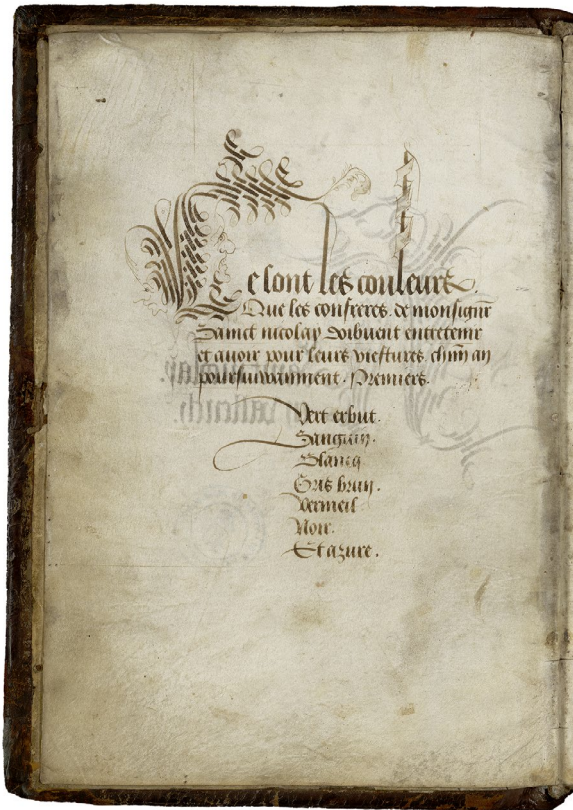 Ce sont les couleurs.
Que les confreres. de monsignr
Sainct nicolay doibuent entretenir
et auoir pour leurs viestures. chũn an
poursuiwanment. Premiers.
Vert erbut.
Sanguin.
Blancq
Gris brun.
Vermeil
Noir.
Et azure.